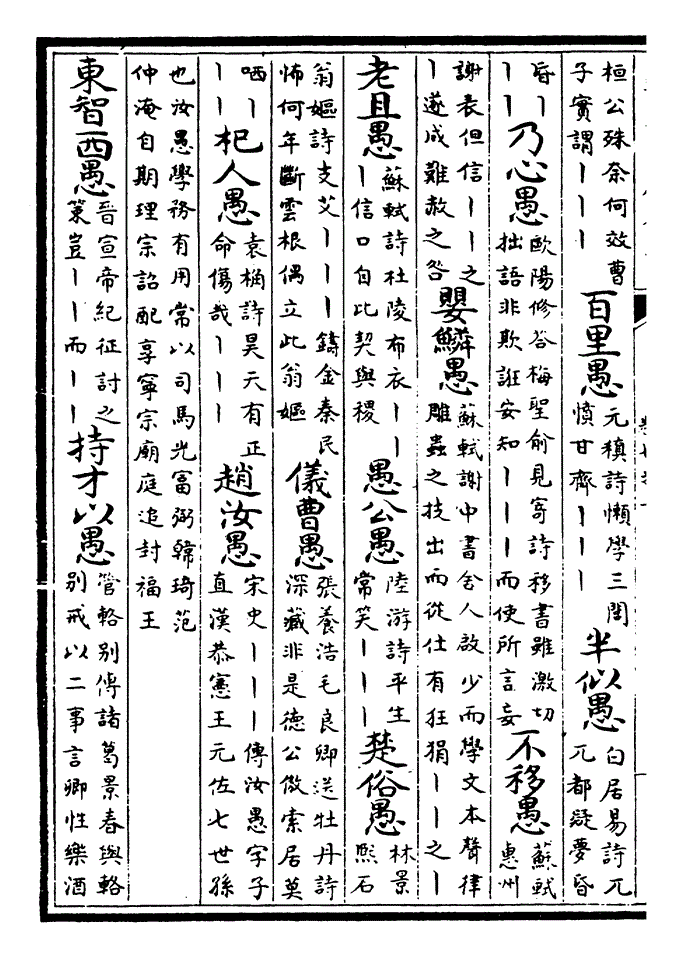 桓公殊奈何效曹子實謂丨丨丨百里愚元稹詩懶學三閭憤甘齊丨丨丨半似愚白居易詩兀兀都疑夢昏
昏丨丨丨乃心愚歐陽修答梅聖俞見寄詩移書雖激切拙語非欺誑安知丨丨丨而使所言妄不移愚蘇軾惠州
謝表但信丨丨之丨遂成難赦之咎嬰鱗愚蘇軾謝中書舍人啟少而學文本聲律雕蟲之技出而從仕有狂狷丨丨之丨
老且愚蘇軾詩杜陵布衣丨丨丨信口自比契與稷愚公愚陸游詩平生常笑丨丨丨楚俗愚林景熙石
翁嫗詩支艾丨丨丨鑄金秦民怖何年斷雲根偶立此翁嫗儀曹愚張養浩毛良卿送牡丹詩深藏非是德公傲索居莫
哂丨丨丨杞人愚袁桷詩昊天有正命傷哉丨丨丨趙汝愚宋史丨丨丨傳汝愚字子直漢恭憲王元佐七世孫
也汝愚學務有用常以司馬光富弼韓琦范仲淹自期理宗詔配享寧宗廟庭追封福王
東智西愚晉宣帝紀征討之策豈丨丨而丨丨持才以愚管輅別傳諸葛景春與輅別戒以二事言卿性樂酒